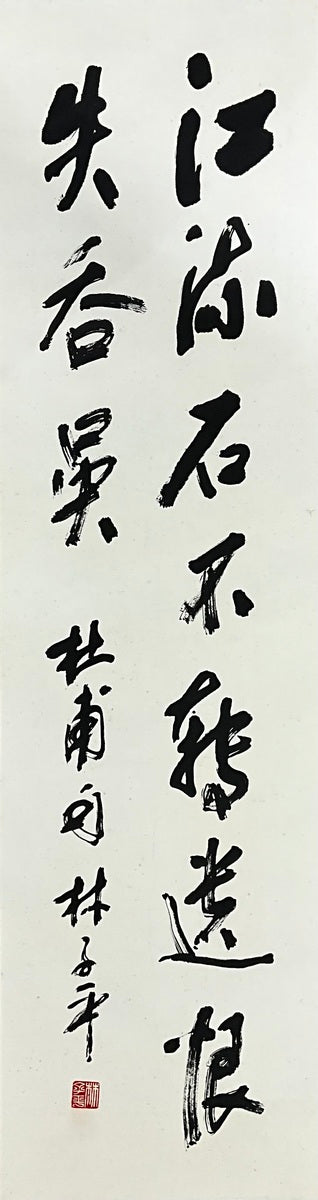 江流石不轉遺恨
失吞吳 杜甫句 林子平
林子平